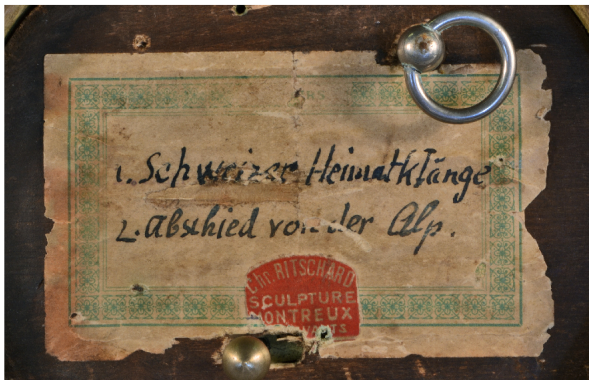 1. Schweizer Heimatklänge
2. Abschied von der Alp.
Chn. RITSCHARD
SCULPTURE
MONTREUX